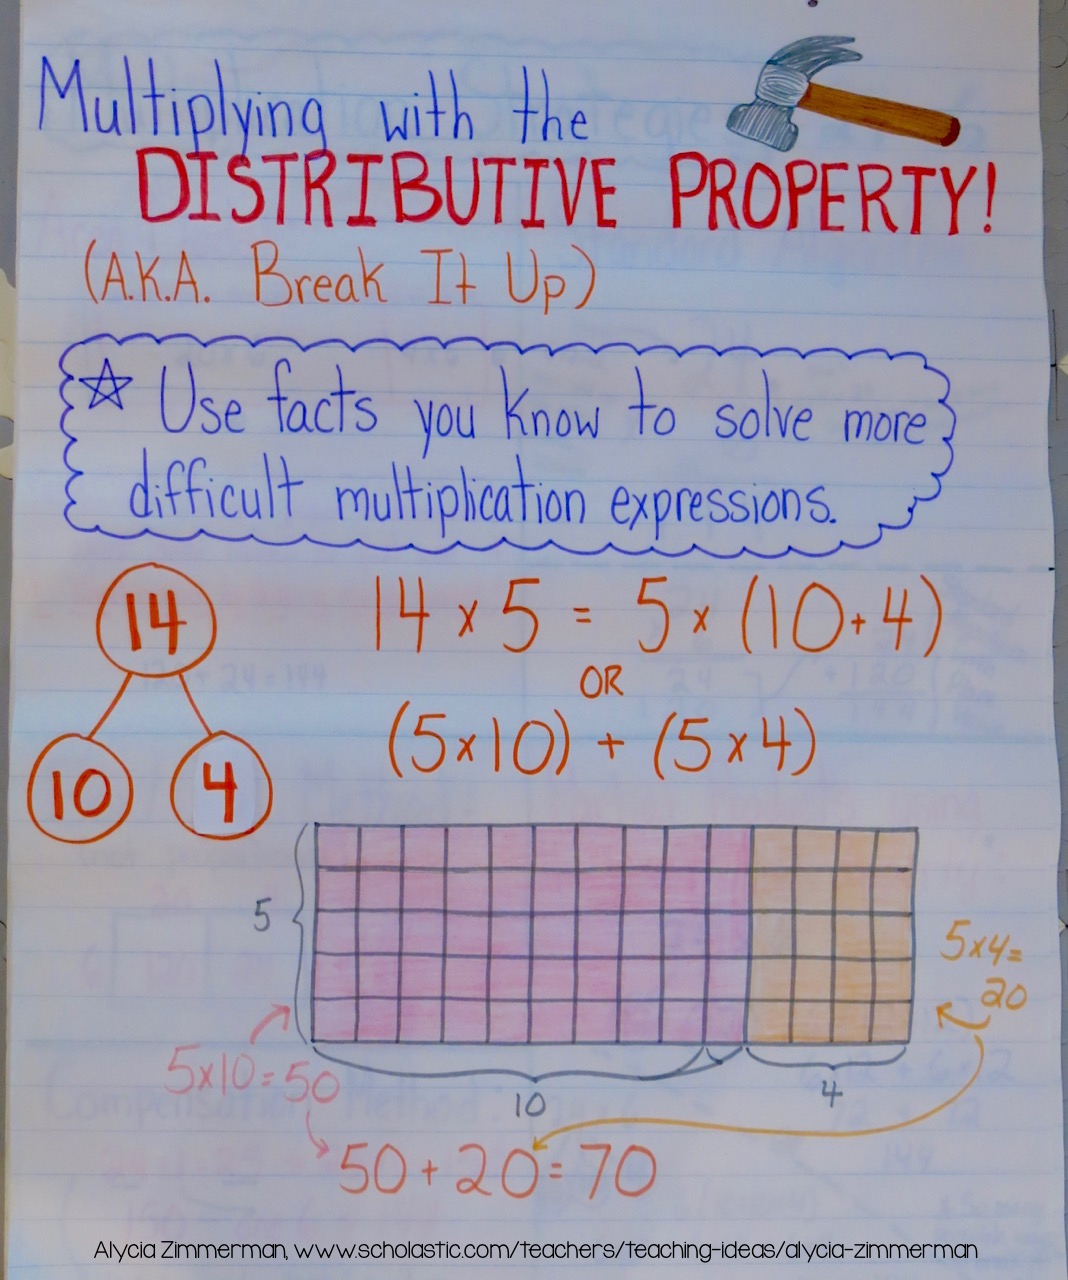 Multiplying with the
DISTRIBUTIVE PROPERTY!
(A.K.A. Break It Up)
☆ Use facts you know to solve more
difficult multiplication expressions.
14
10 4
14 x 5 = 5 x (10 + 4)
OR
(5x10) + (5 x 4)
5
5x4=
20
5x10=50
10
4
50 + 20 = 70
Alycia Zimmerman, www.scholastic.com/teachers/teaching-ideas/alycia-zimmerman